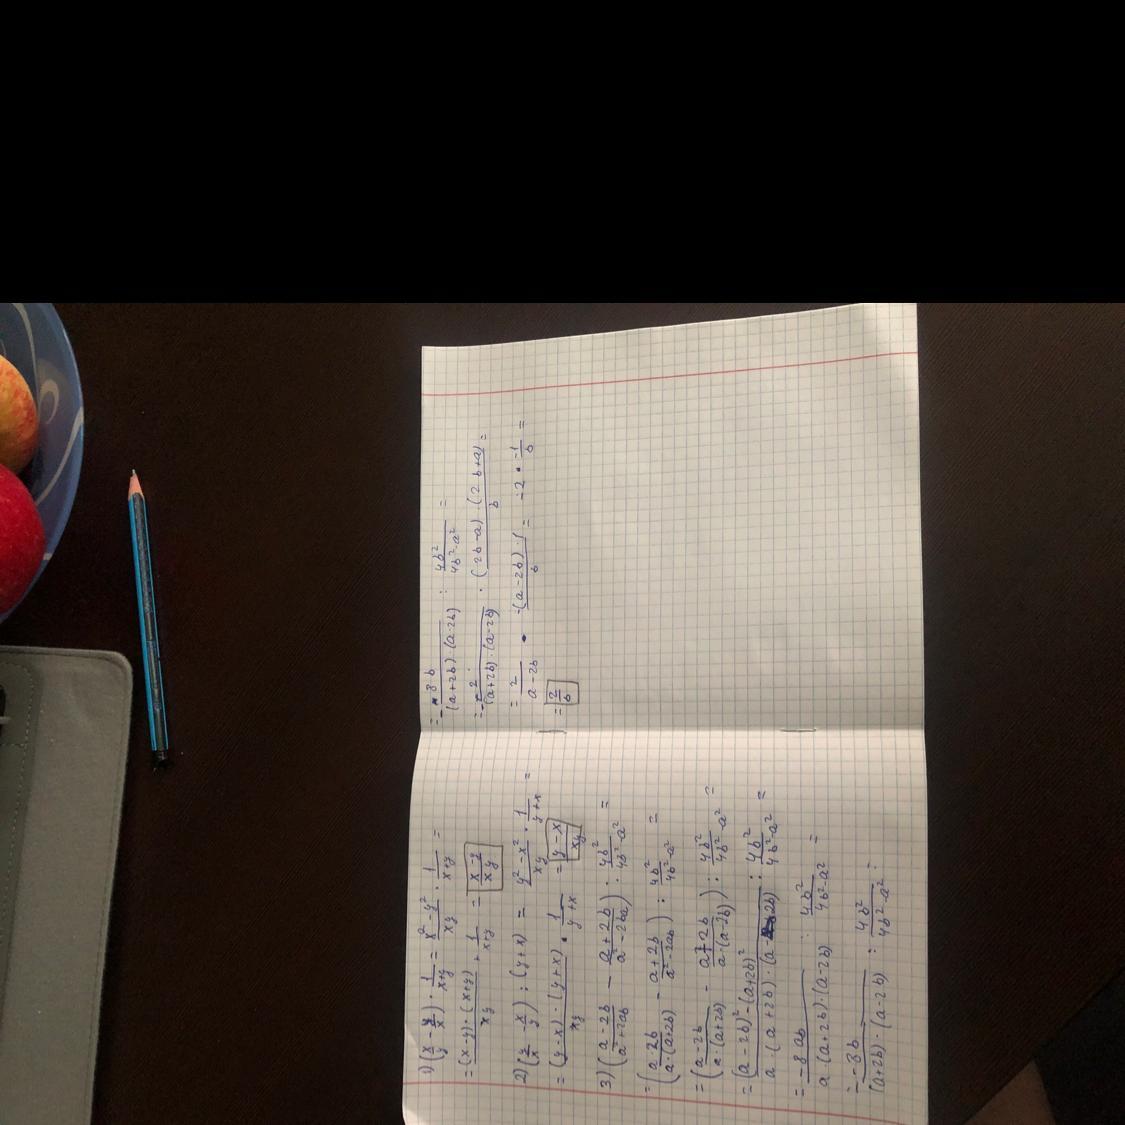 1) (x/y - y/x) · 1/(x+y) = (x² - y²)/(xy) · 1/(x+y) =
= ((x-y)·(x+y))/(xy) · 1/(x+y) = (x-y)/(xy)
2) (y/x - x/y) : (y+x) = (y² - x²)/(xy) · 1/(y+x) =
= ((y-x)·(y+x))/(xy) · 1/(y+x) = (y-x)/(xy)
3) ((a-2b)/(a²+2ab) - (a+2b)/(a²-2ba)) : 4b²/(4b²-a²) =
= ((a-2b)/(a·(a+2b)) - (a+2b)/(a²-2ab)) : 4b²/(4b²-a²) =
= ((a-2b)/(a·(a+2b)) - (a+2b)/(a·(a-2b))) : 4b²/(4b²-a²) =
= ((a-2b)²-(a+2b)²)/(a·(a+2b)·(a-2b)) : 4b²/(4b²-a²) =
= -8ab/(a·(a+2b)·(a-2b)) : 4b²/(4b²-a²) =
= -8b/((a+2b)·(a-2b)) : 4b²/(4b²-a²) =
= -8b/((a+2b)·(a-2b)) : 4b²/(4b²-a²) =
= -2/((a+2b)·(a-2b)) · ((2b-a)·(2b+a))/b =
= 2/(a-2b) · (-(a-2b)·1)/b = -2 · -1/b =
= 2/b